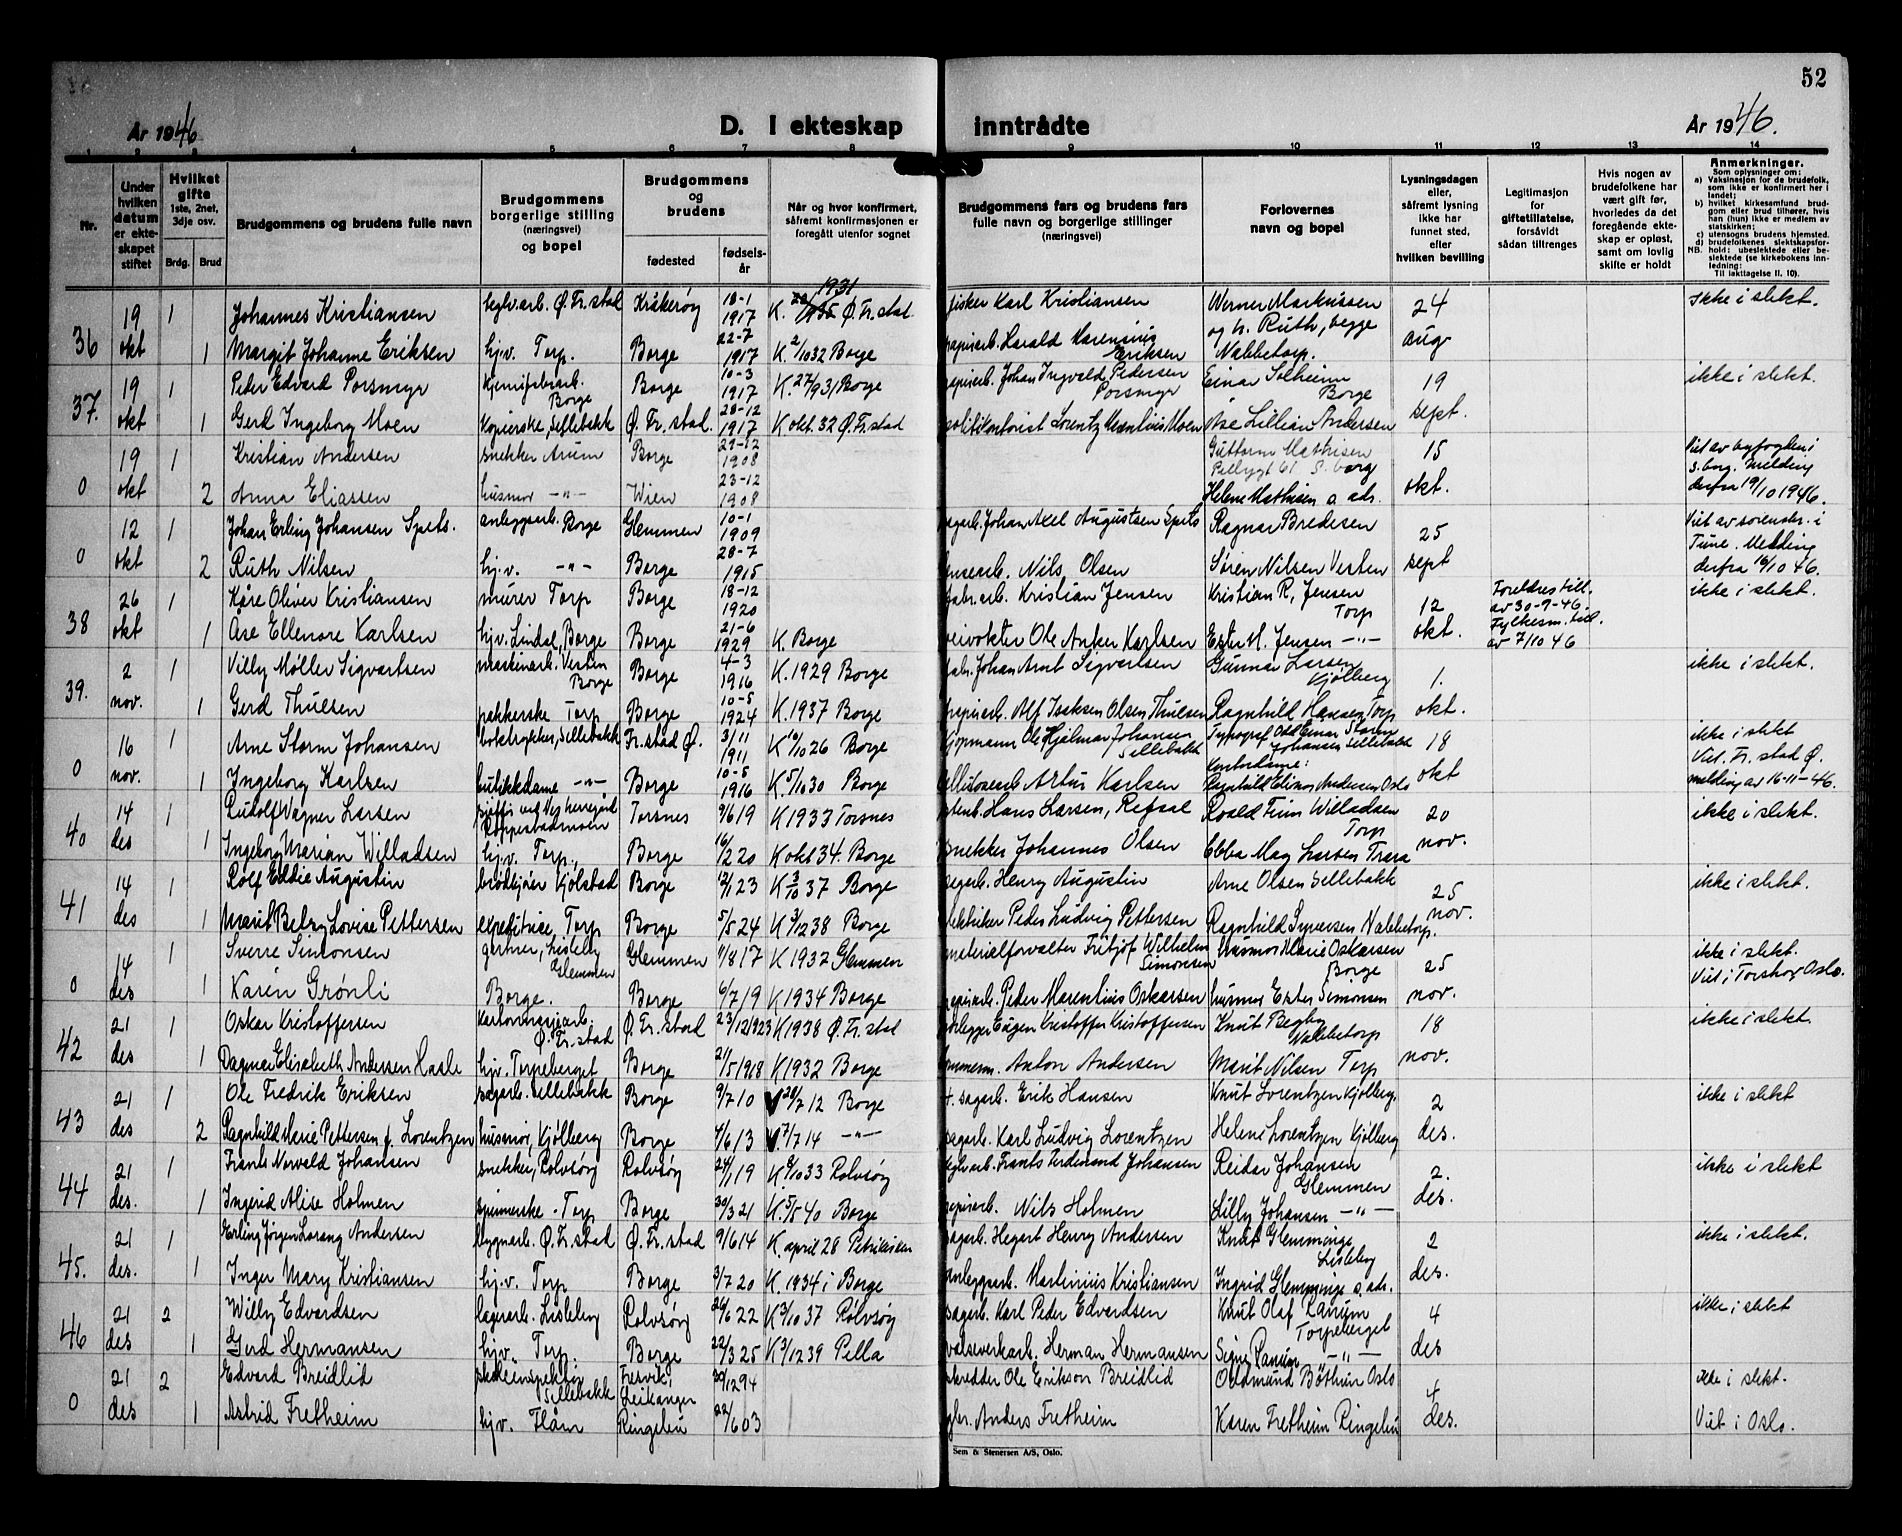 52
År 1946
D. I ekteskap inntrådte
År 1946.
1 2 3 4 5 6 7 8 9 10 11 12 13 14
Nr.
Under hvilken datum er ekteskapet stiftet
Hvilket gifte 1ste, 2net, 3dje osv.
Brdg. Brud
Brudgommens og brudens fulle navn
Brudgommens borgerlige stilling (næringsvei) og bopel
Brudgommens og brudens
fødested
fødselsår
Når og hvor konfirmert, såfremt konfirmasjonen er foregått utenfor sognet
Brudgommens fars og brudens fars fulle navn og borgerlige stillinger (næringsvei)
Forlovernes navn og bopel
Lysningsdagen eller, såfremt lysning ikke har funnet sted, eller hvilken bevilling
Legitimasjon for giftetillatelse, forsåvidt sådan tiltrenges
Hvis nogen av brudefolkene har vært gift før, hvorledes da det foregående ekteskap er opløst, samt om lovlig skifte er holdt
Anmerkninger.
Som oplysninger om:
a) Vaksinasjon for de brudefolk, som ikke er konfirmert her i landet;
b) hvilket kirkesamfund brudgom eller brud tilhører, hvis han (hun) ikke er medlem av statskirken;
c) utensogns brudens hjemsted.
d) brudefolkenes slektskapsforhold: ubeslektede eller beslektede (se kirkebokens innledning:
NB. Til iakttagelse II. 10).
36 19 okt 1 Johannes Kristiansen teglv.arb. Ø. Fr.stad Kråkerøy 18-1 1917 K. 1931 Ø. Fr. stad fisker Karl Kristiansen Werner Markussen 24 aug ikke i slekt.
1 Margit Johanne Eriksen hj.v. Torp. Borge 22-7 1917 K. 2/10 32 Borge papirarb. Harald Marensius Eriksen og h. Ruth, begge Nabbetorp.
37. 19 okt 1 Peder Edvard Porsmyr kjemifabrarb. Borge Borge 10-3 1917 K. 27/9 31 Borge papirarb. Johan Ingvald Pedersen Porsmyr Einar Solheim Borge 19 sept. ikke i slekt.
1 Gerd Ingeborg Moen kopierske, Sellebakk Ø. Fr. stad. 28-12 1917 K okt. 32 Ø. Fr. stad politikonstbl. Lorentz Moen Åse Lillian Andersen
0 19 okt 1 Kristian Andersen snekker Årum Borge 1908 Guttorm Mathisen S. borg 15 okt. Viet av byfogden i S.borg. Melding derfra 19/10 1946.
2 Anna Eliassen husmor -"- Wien 23-12 1908 Helene Mathisen s. adr.
0 12 okt 1 Johan Erling Johansen Spets. anleggsarb. Borge Glemmen 10-1 1909 sagarb. Johan Axel Augustsen Spets Ragnar Bredesen 25 sept Viet av sorenskr. i Tune. Melding derfra 16/10 46.
2 Ruth Nilsen hj.v. -"- Borge 28-7 1915 Nils Olsen Søren Nilsen Vesten
38 26 okt 1 Kåre Oliver Kristiansen murer Torp Borge 18-12 1920 fabr.arb. Kristian Jensen Kristian R. Jensen Torp 12 okt. Foreldres till. av 30-9-46. Fylkesm. till. av 7/10 46 ikke i slekt.
1 Åse Ellenore Karlsen hj.v. Lindal, Borge Borge 21-6 1929 K. Borge veivokter Ole Anker Karlsen Ester M. Jensen -"-
39. 2 nov. 1 Villy Møller Sigvartsen maskinarb. Vesten Borge Borge 4-3 1916 K. 1929 Borge fabr. Johan Arnt Sigvartsen Gunnar Larsen Kjølberg 1. okt. ikke i slekt.
1 Gerd Thulsen pakkerske Torp Borge 10-5 1924 K. 1937 Borge papirarb. Alf Isaksen Olsen Thulsen Ragnhild Hansen Torp
0 16 nov. 1 Arne Storm Johansen boktrykker, Sellebakk Fr. stad Ø. 3/11 1911 K 16/10 26 Borge Kjøpmann Ole Hjalmar Johansen Sellebakk Typograf Odd Einar Storm Johansen Sellebakk 18 okt ikke i slekt Viet. Fr. stad Ø. melding av 16-11-46.
1 Ingeborg Karlsen butikkdame -"- Borge 10-5 1916 K. 5/10 30 Borge cellulosearb. Artur Karlsen Kontordame: Ragnhild Elinor Andersen Oslo
40 14 des 1 Rudolf Vagner Larsen sjåfør Torsnes 9/6 19 K 1933 Torsnes Hans Larsen, Refsal Roald Finn Willadsen Torp 20 nov. ikke i slekt.
1 Ingeborg Marian Willadsen hj.v. Torp. Borge 16/2 20 K okt 34. Borge Snekker Johannes Olsen Ebba May Larsen Trara
41 14 des 1 Rolf Eddie Augustin brødkjører Kjølstad Borge 12/1 23 K 3/10 37 Borge sagarb. Henry Augustin Arne Olsen Sellebakk 25 nov. ikke i slekt.
1 Marit Betzy Lovise Pettersen expeditrise, Torp Borge 5/5 24 K 3/12 38 Borge elektriker Peder Ludvig Pettersen Ragnhild Syversen Nabbetorp.
0 14 des 1 Sverre Simonsen gartner, Lisleby Glemmen Glemmen 1/8 17 K 1932 Glemmen materialforvalter Fritjof Wilhelm Simonsen husmor Marie Oskarsen Borge 25 nov. ikke i slekt. Viet i Torshov Oslo.
1 Karen Grønli Borge. Borge 6/7 19 K 1934 Borge papirarb. Peder Marentius Oskarsen husmor Ester Simonsen
42 21 des 1 Oskar Kristoffersen kartonnasjearb. Ø. Fr. stad Ø. Fr. stad 23/12 1923 K 1938 Ø. Fr. stad rørlegger Eugen Kristoffer Kristoffersen Knut Begby Nabbetorp 18 nov. ikke i slekt.
1 Dagmar Elisabeth Andersen Hasle hj.v. Torpeberget Borge 21/5 1918 K 1932 Borge tømmerm. Anton Andersen Marit Nilsen Torp
43 21 des 1 Ole Fredrik Eriksen sagarb. Sellebakk Borge 9/7 10 V 28/7 12 Borge f. sagarb. Erik Hansen Knut Lorentzen Kjølberg. 2 des. ikke i slekt
2 Ragnhild Marie Pettersen f. Lorentzen husmor, Kjølberg Borge 4/6 13 V. 7/7 14 -"- sagarb. Karl Ludvig Lorentzen Helene Lorentzen Kjølberg
44 21 des. 1 Frants Norvald Johansen snekker, Rolvsøy Rolvsøy 24/1 19 K 8/10 33 Rolvsøy teglv.arb. Frants Ferdinand Johansen Reidar Johansen Glemmen 2. des. ikke i slekt
1 Ingerid Alise Holmen spinnerske - Torp Borge 30/3 21 K. 5/5 40 Borge papirarb. Nils Holmen Lilly Johansen -"-
45. 21 des. 1 Erling Jørgen Lorang Andersen bygnarb. Ø. Fr. stad Ø. Fr. stad 9/6 14 K. april 28 Petrikirken sagarb. Hegart Henry Andersen Knut Glemminge Lisleby 2 des. ikke i slekt.
1 Inger Mary Kristiansen hj.v. Torp Borge 3/7 20 K. 1934 i Borge anleggsarb. Martinius Kristiansen Ingrid Glemminge s. adr.
46 21 des 2 Willy Edvardsen lagerarb. Lisleby Rolvsøy 24/6 22 K 3/10 37 Rolvsøy sagarb. Karl Peder Edvardsen Knut Olaf Ranum Torpeberget 4 des ikke i slekt
1 Gerd Hermansen hj.v. Torp. Borge 22/3 25 K 3/12 39 Pella valseverkarb. Herman Hermansen Signe Ranum -"-
0 21 des 2 Edvard Breidlid skoleinspektør Sellebakk Fresvik, Leikanger 30/12 94 skredder Ole Erikson Breidlid Oddmund Bøthun Oslo 4 des. ikke i slekt.
1 Astrid Fretheim hj.v. Flåm Ringebu 22/6 03 gbr. Anders Fretheim Karen Fretheim Ringebu Viet i Oslo.
Sem & Stenersen A/S, Oslo.